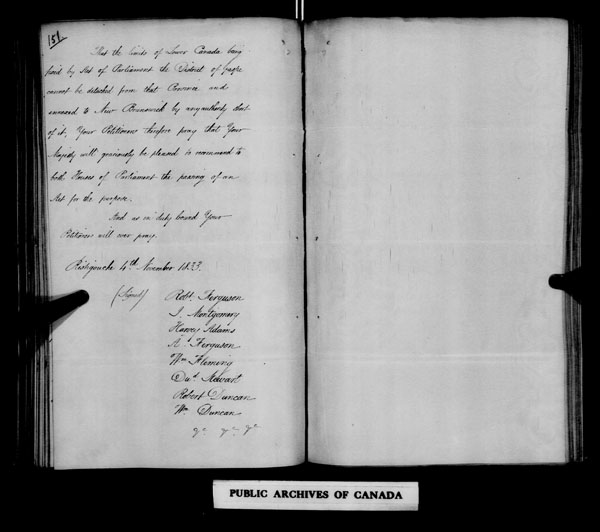 151.
That the limits of Lower Canada being
fixed by Act of Parliament the District of Gaspé
cannot be detached from that Province and
annexed to New Brunswick by any authority short
of it; Your Petitioners therefore pray that Your
Majesty will graciously be pleased to recommend to
both Houses of Parliament the passing of an
Act for the purpose.
And as in duty bound Your
Petitioners will ever pray.
Ristigouche 4th November 1833.
(Signed) Robt. Ferguson
J. Montgomery
Harvey Adams
Ad. Ferguson
Wm Fleming
Dud. Stewart
Robert Duncan
Wm Duncan
&c &c &c
PUBLIC ARCHIVES OF CANADA